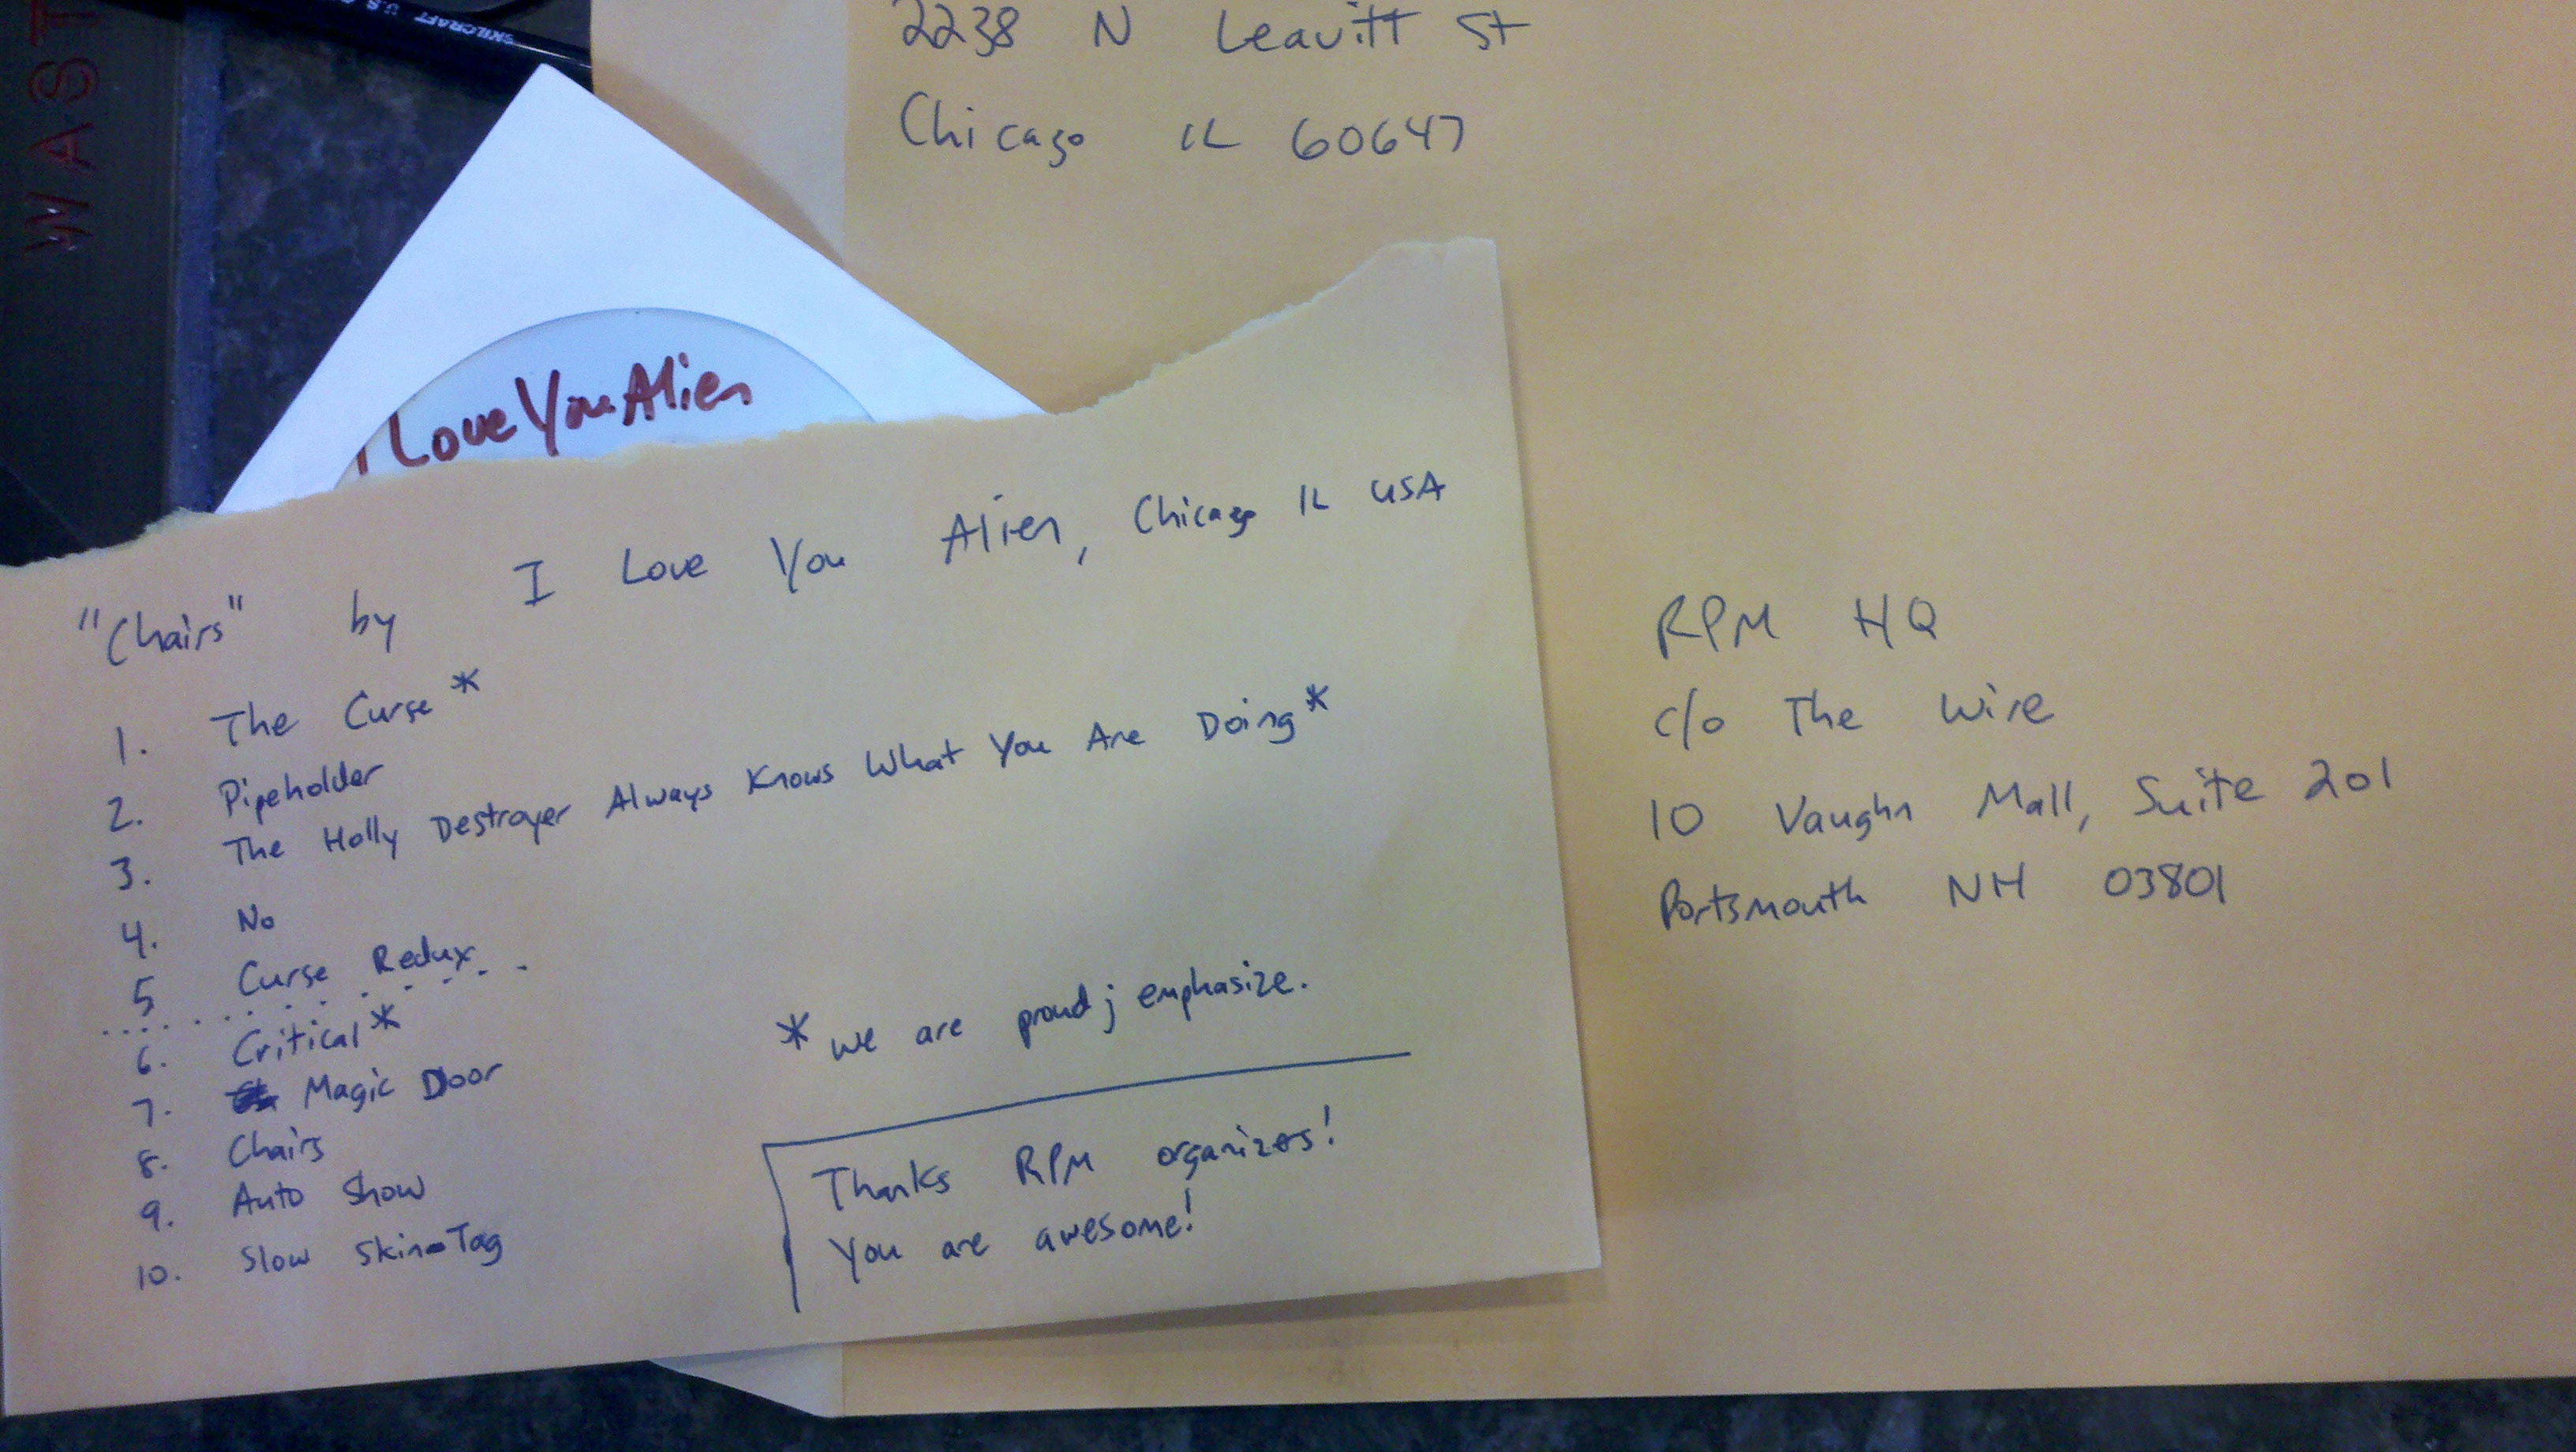 WAST
SKILCRAFT U.S.
2238 N Leavitt St
Chicago IL 60647
I Love You Alien
"Chairs" by I Love You Alien, Chicago IL USA
1. The Curse *
2. Pipeholder
3. The Holly Destroyer Always Knows What You Are Doing *
4. No
5 Curse Redux
6. Critical *
7. Magic Door
8. Chairs
9. Auto Show
10. Slow Skin-Tag
* we are proud; emphasize.
Thanks RPM organizers!
You are awesome!
RPM HQ
c/o The Wire
10 Vaughn Mall, Suite 201
Portsmouth NH 03801